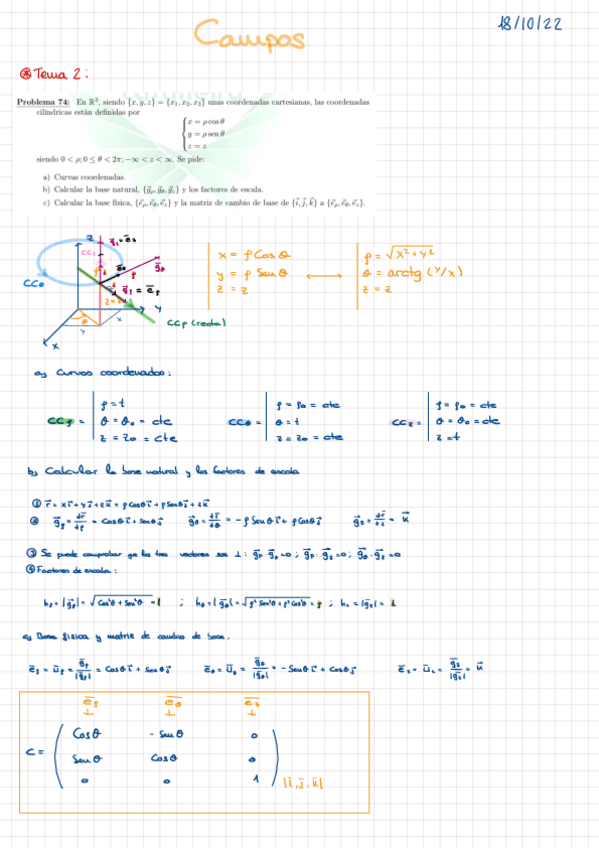 18/10/22
Campos
⊛ Tema 2:
Problema 74: En R³, siendo {x, y, z} = {x₁, x₂, x₃} unas coordenadas cartesianas, las coordenadas
cilíndricas están definidas por
x = ρ cos θ
y = ρ sen θ
z = z
siendo 0 < ρ; 0 ≤ θ < 2π; −∞ < z < ∞. Se pide:
a) Curvas coordenadas.
b) Calcular la base natural, {g⃗ρ, g⃗θ, g⃗z} y los factores de escala.
c) Calcular la base física, {e⃗ρ, e⃗θ, e⃗z} y la matriz de cambio de base de {i⃗, j⃗, k⃗} a {e⃗ρ, e⃗θ, e⃗z}.
x = ρ Cos θ
y = ρ Sen θ
z = z
⟷
ρ = √(x² + y²)
θ = arctg (y/x)
z = z
z
CCz
CCθ
CCρ (recta)
x
y
a) Curvas coordenadas:
CCρ = | ρ = t
θ = θ₀ = cte
z = z₀ = cte
CCθ = | ρ = ρ₀ = cte
θ = t
z = z₀ = cte
CCz = | ρ = ρ₀ = cte
θ = θ₀ = cte
z = t
b) Calcular la base natural y los factores de escala
① r⃗ = x i⃗ + y j⃗ + z k⃗ = ρ Cosθ i⃗ + ρ Senθ j⃗ + z k⃗
② g⃗ρ = dr⃗/dρ = Cosθ i⃗ + Senθ j⃗ g⃗θ = dr⃗/dθ = −ρ Senθ i⃗ + ρ Cosθ j⃗ g⃗z = dr⃗/dz = k⃗
③ Se puede comprobar que los tres vectores son ⊥: g⃗ρ · g⃗θ = 0 ; g⃗ρ · g⃗z = 0 ; g⃗θ · g⃗z = 0
④ Factores de escala:
hρ = |g⃗ρ| = √(Cos²θ + Sen²θ) = 1 ; hθ = |g⃗θ| = √(ρ² Sen²θ + ρ² Cos²θ) = ρ ; hz = |g⃗z| = 1
c) Base física y matriz de cambio de base.
e⃗ρ = u⃗ρ = g⃗ρ/|g⃗ρ| = Cosθ i⃗ + Senθ j⃗ e⃗θ = u⃗θ = g⃗θ/|g⃗θ| = −Senθ i⃗ + Cosθ j⃗ e⃗z = u⃗z = g⃗z/|g⃗z| = k⃗
e⃗ρ e⃗θ e⃗z
↓ ↓ ↓
Cosθ −Senθ 0
C = Senθ Cosθ 0
0 0 1
|i⃗, j⃗, k⃗|